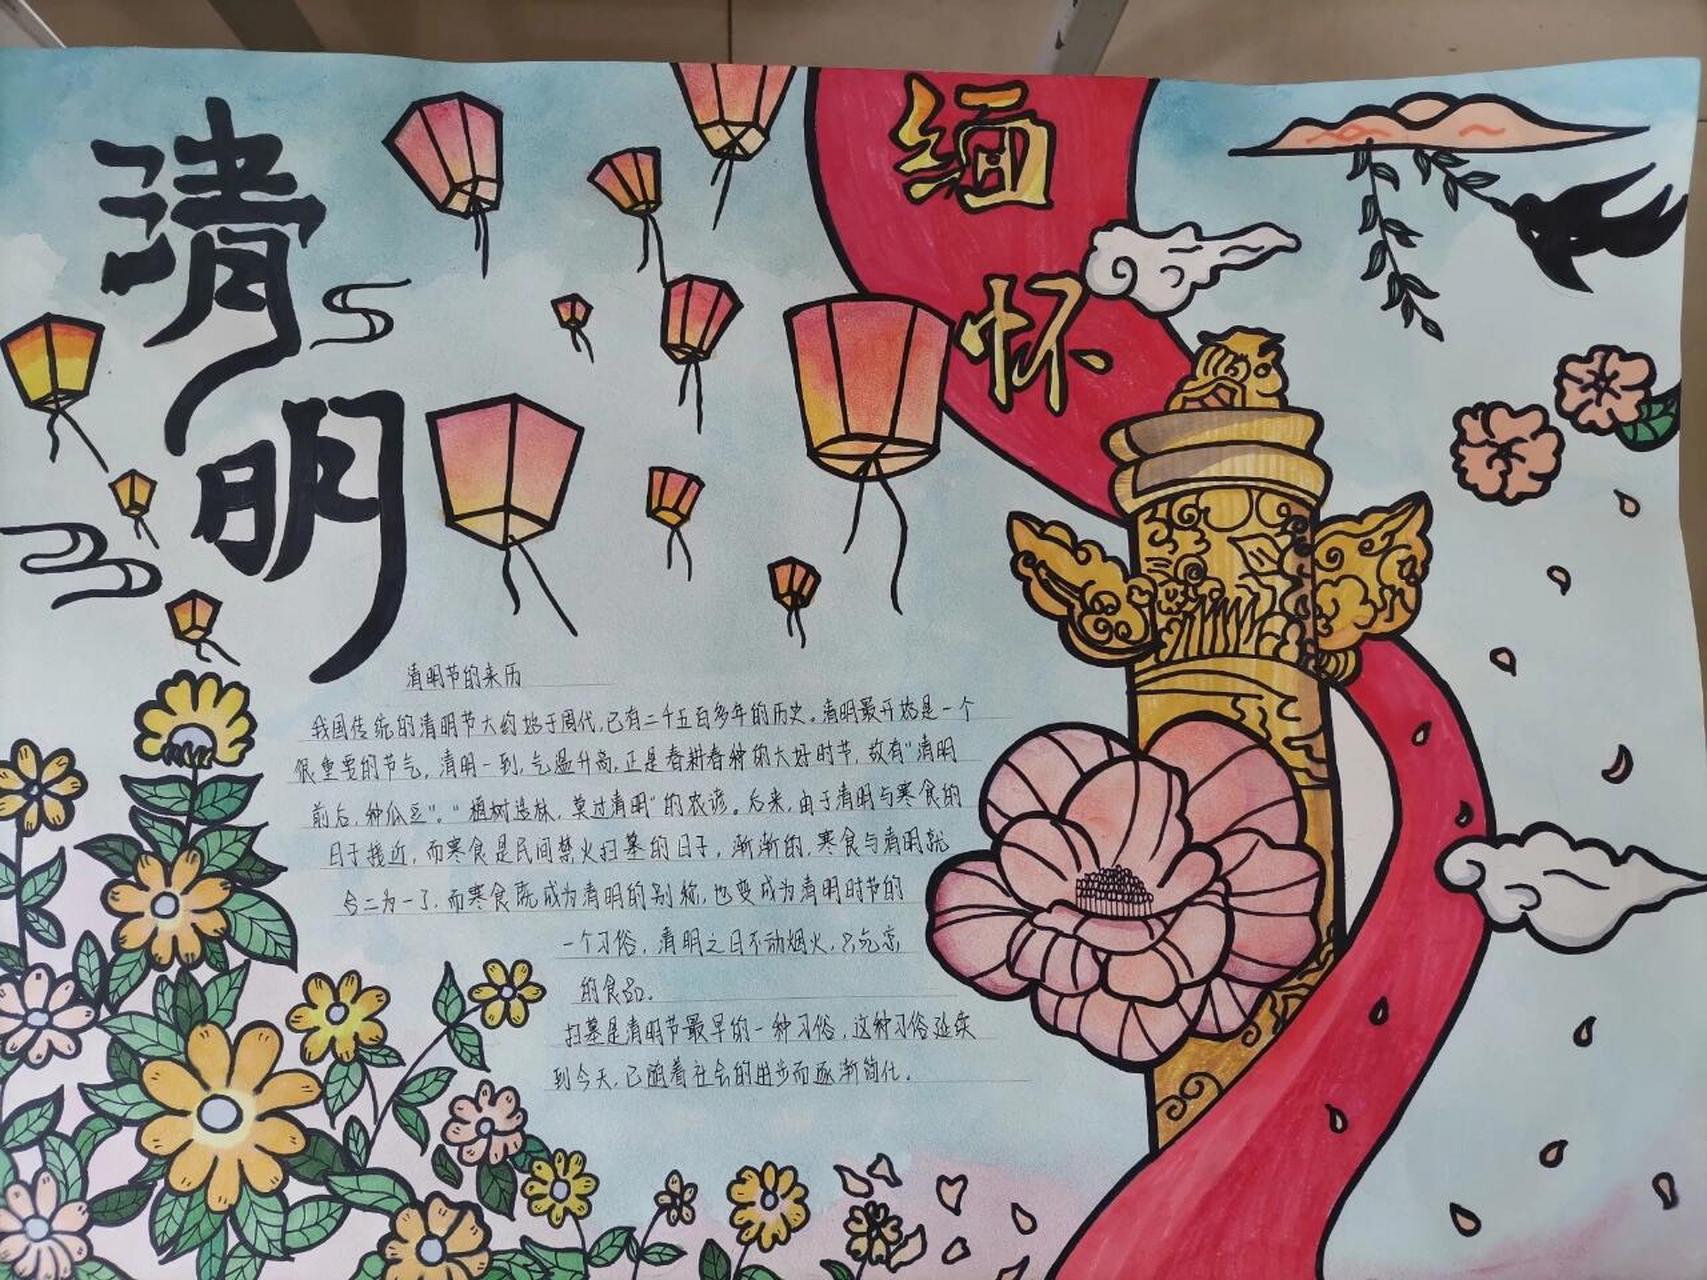 清明
缅怀
清明节的来历
我国传统的清明节大约始于周代,已有二千五百多年的历史。清明最开始是一个
很重要的节气,清明一到,气温升高,正是春耕春种的大好时节,故有"清明
前后,种瓜豆"。"植树造林,莫过清明"的农谚。后来,由于清明与寒食的
日子接近,而寒食是民间禁火扫墓的日子,渐渐的,寒食与清明就
合二为一了,而寒食既成为清明的别称,也变成为清明时节的
一个习俗,清明之日不动烟火,只吃凉
的食品。
扫墓是清明节最早的一种习俗,这种习俗延续
到今天,已随着社会的进步而逐渐简化。